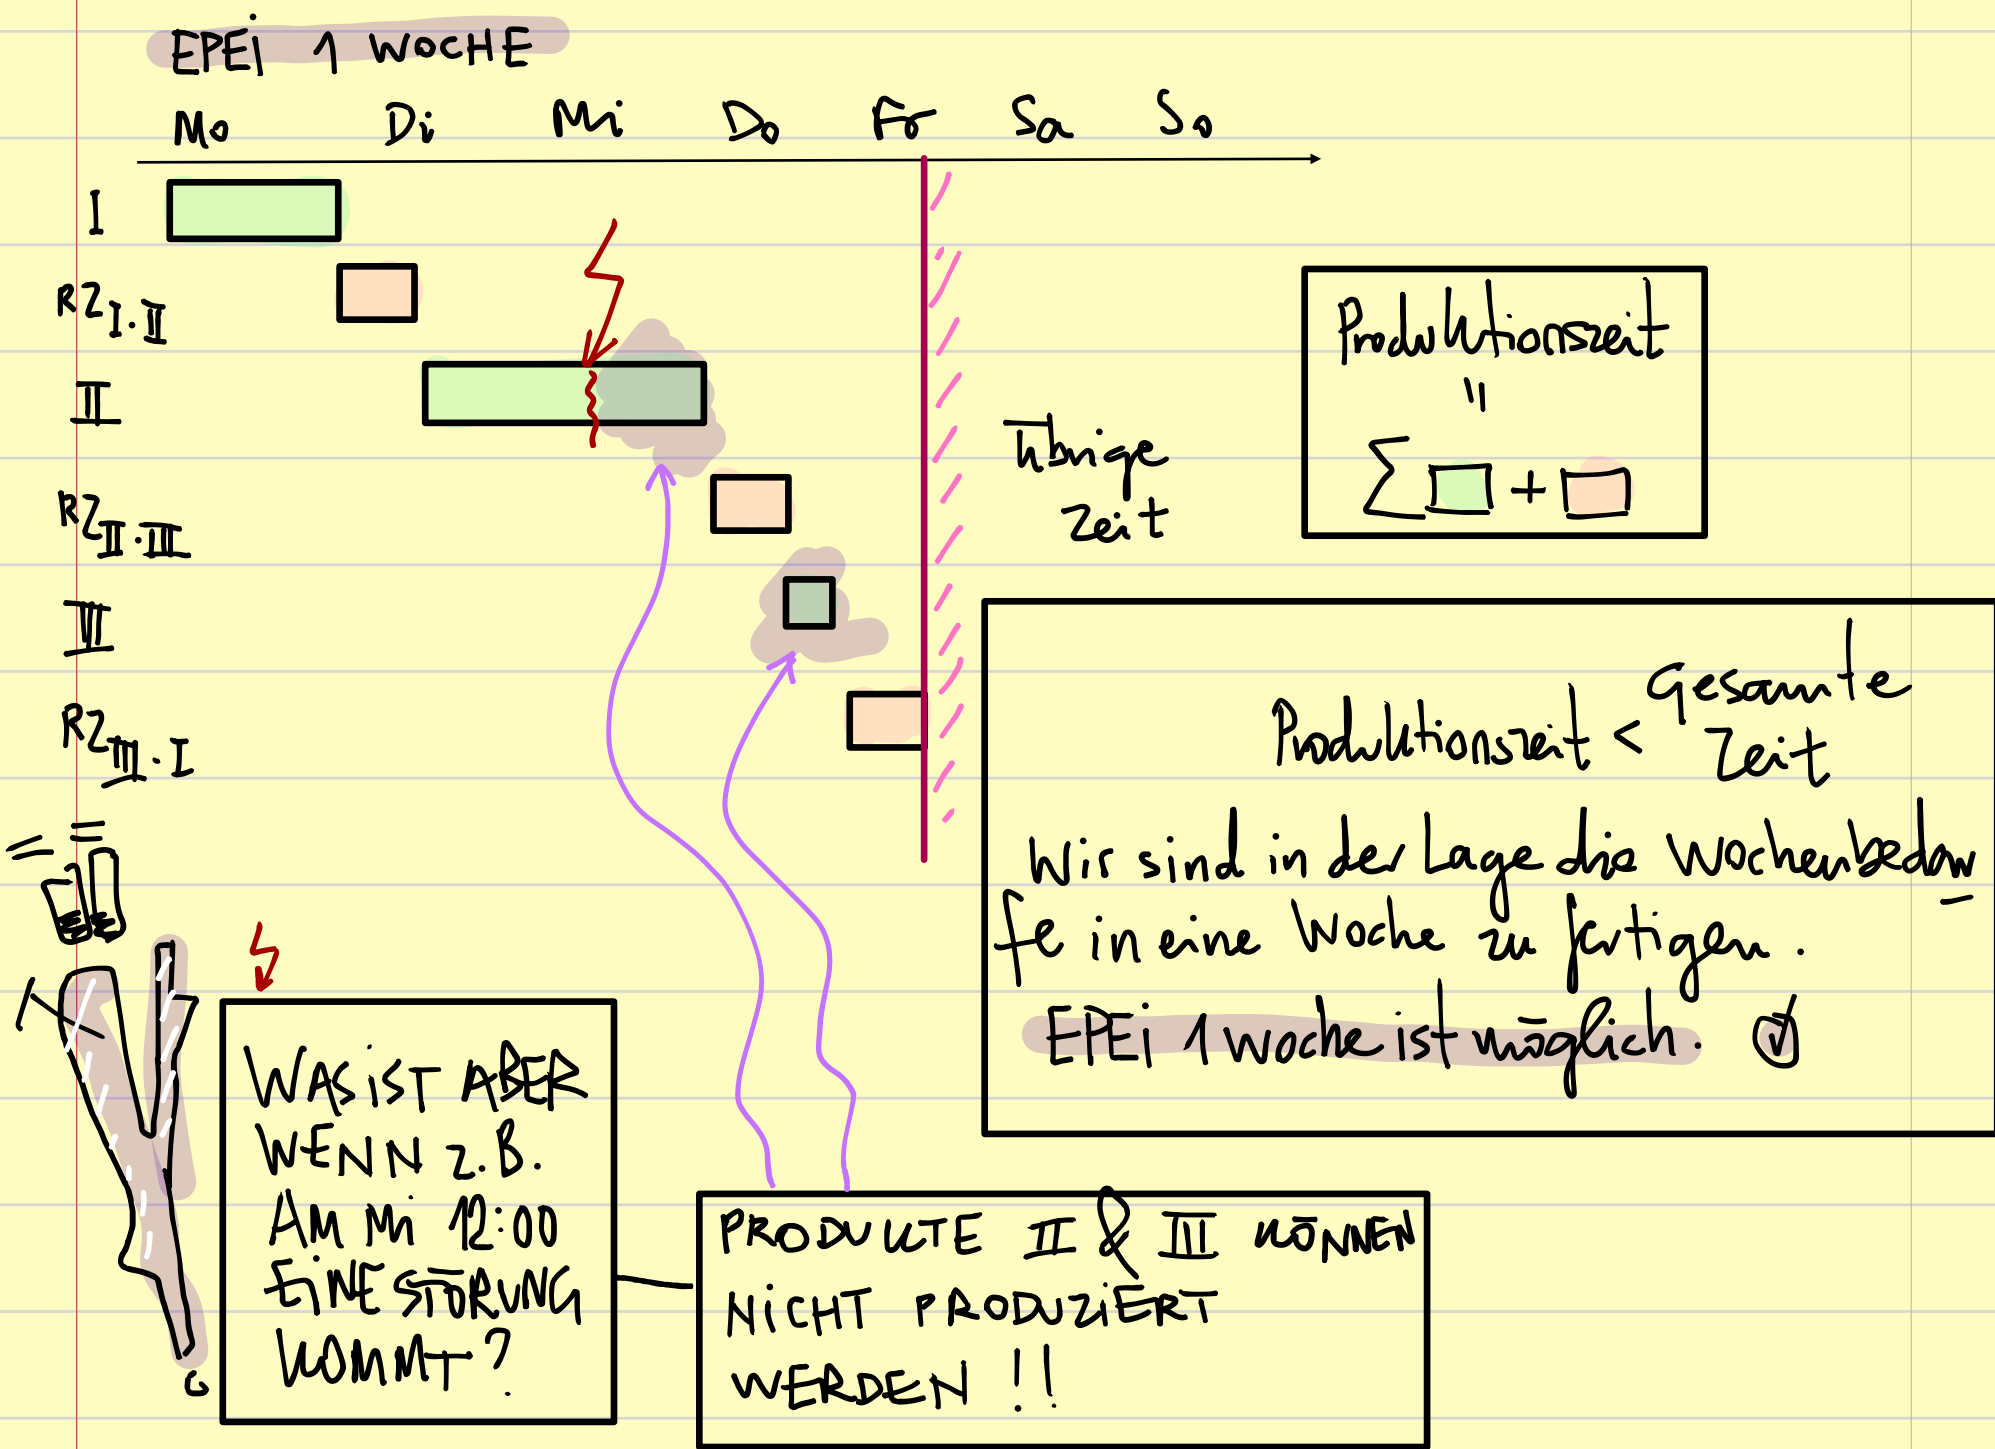 EPEi 1 WOCHE
Mo Di Mi Do Fr Sa So
I
RZ I.II
II
RZ II.III
III
RZ III.I
Übrige
Zeit
Produktionszeit
=
Σ +
Produktionszeit < Gesamte
Zeit
Wir sind in der Lage die Wochenbedar
fe in eine Woche zu fertigen.
EPEi 1 Woche ist möglich.
WAS iST ABER
WENN z.B.
AM Mi 12:00
EiNE STÖRUNG
KOMMT?
PRODUKTE II & III KÖNNEN
NiCHT PRODUZiERT
WERDEN !!